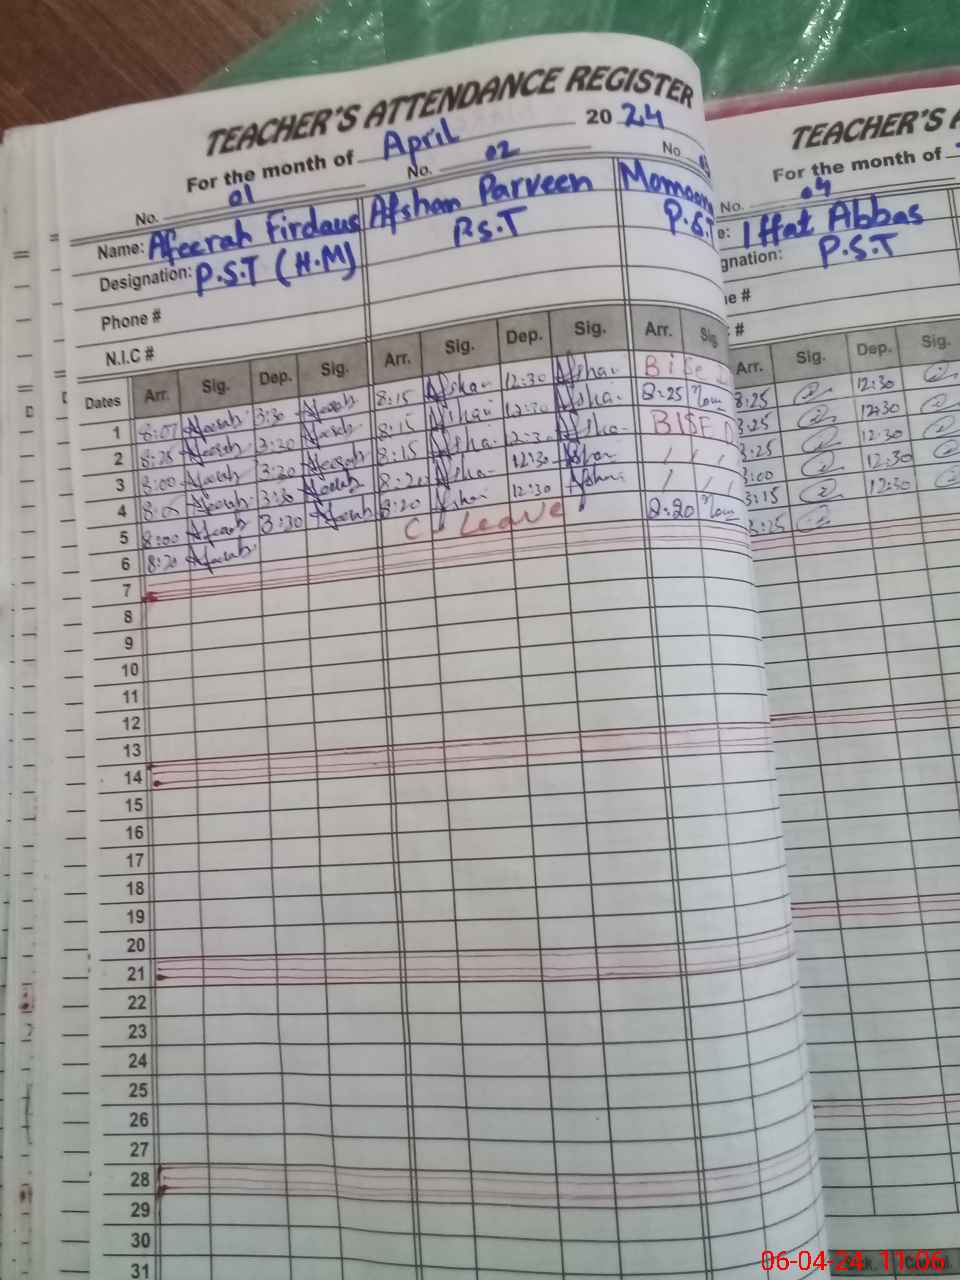 TEACHER'S ATTENDANCE REGISTER
For the month of April 2024
No. 01 No. 02 No
Name: Afeerah Firdaus Afshan Parveen
Designation: P.S.T (H.M) P.S.T P.S.T
Phone #
N.I.C #
Dates Arr. Sig. Dep. Sig. Arr. Sig. Dep. Sig. Arr. Sig
1 8:07 Afeerah 3:30 Afeerah 8:15 Afshan 12:30 Afshan BISE
2 8:25 Afeerah 3:30 Afeerah 8:15 Afshan 12:30 Afshan 8:25
3 8:00 Afeerah 3:30 Afeerah 8:15 Afshan 12:30 Afshan BISE D
4 Afeerah 3:30 Afeerah Afshan 12:30 Afshan
5 8:00 Afeerah 3:30 Afeerah 8:20 Afshan 12:30 Afshan
6 8:20 Afeerah C Leave 8:20
7
8
9
10
11
12
13
14
15
16
17
18
19
20
21
22
23
24
25
26
27
28
29
30
31
TEACHER'S A
For the month of
No. 04
e: Iffat Abbas
gnation: P.S.T
e #
#
Arr. Sig. Dep. Sig.
8:25 12:30
8:25 12:30
8:25 12:30
8:00 12:30
8:15 12:30
8:25
06-04-24 11:06